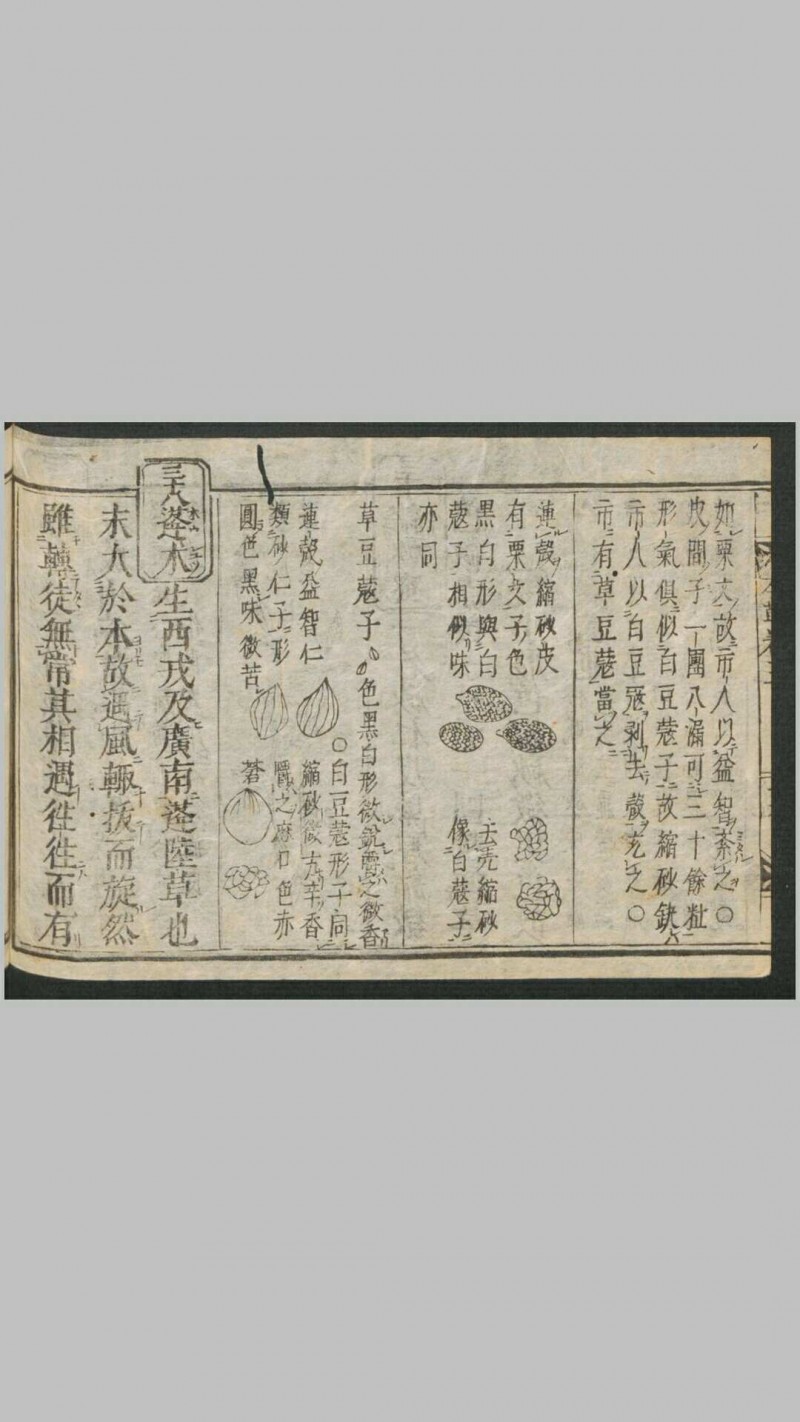 如栗文故市人以益智紊之○
皮間子一團八漏可三十餘粒
形氣俱似白豆蔻子故縮砂缺
市人以白豆蔻剥去殼充之○
市有草豆蔻當之
連殼縮砂皮
有栗文子色
黒白形與白
蔻子相似味
亦同
去壳縮砂
像白蔻子
草豆蔻子
色黒白形微鋭嗅之微香
○白豆蔻形子同
連殼益智仁
縮砂微大辛香
類砂仁子形
嚼之麻口色亦
圓色黒味微苦
蒼
三十八
蓬朮
生西戎及廣南蓬陸草也
末大於本故遇風輙拔而旋然
雖轉徒無常其相遇徃徃而有